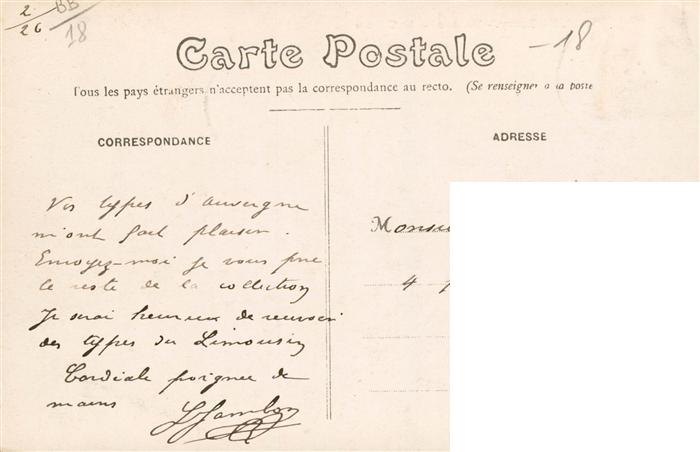 2/26
BB
18
Carte Postale
-18
Tous les pays étrangers n'acceptent pas la correspondance au recto. (Se renseigner à la poste
CORRESPONDANCE
ADRESSE
Vos types d'auvergne
m'ont fait plaisir.
Envoyez-moi je vous prie
le reste de la collection
Je serai heureux de recevoir
des types du Limousin
Cordiale poignée de
mains
Monsieu
4